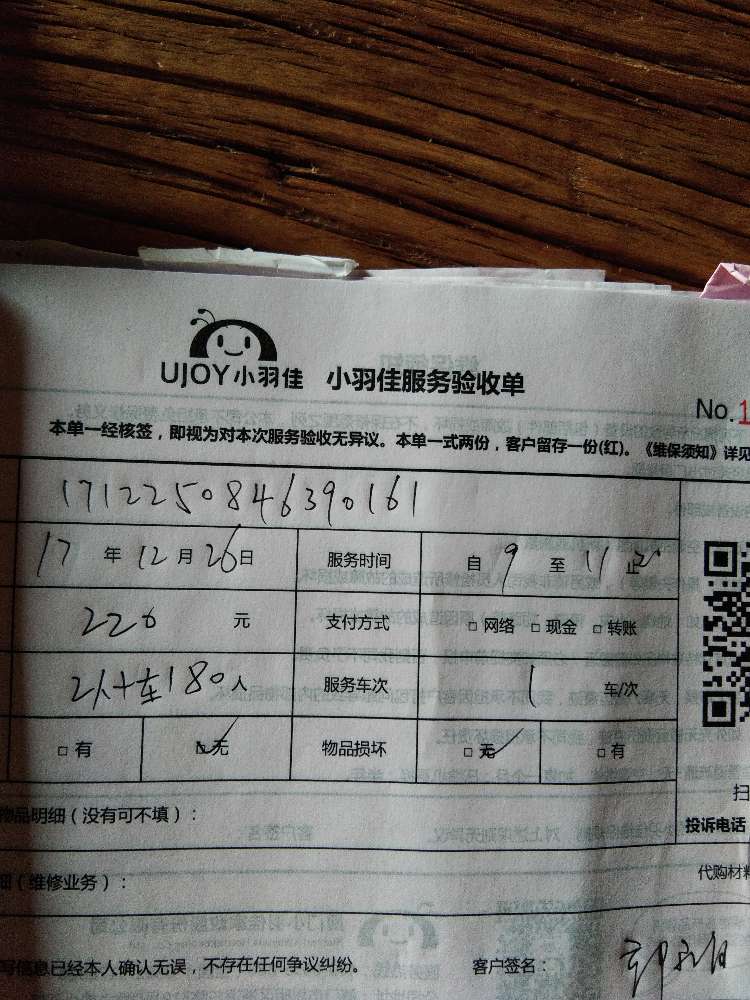 UJOY小羽佳 小羽佳服务验收单
No.1
本单一经核签，即视为对本次服务验收无异议。本单一式两份，客户留存一份(红)。《维保须知》详见
1712250846390161
17 年 12 月 26 日 服务时间 自 9 至 11 止
220 元 支付方式 □ 网络 □ 现金 □ 转账
2人+车180 人 服务车次 1 车/次
□ 有 □ 无 物品损坏 □ 无 □ 有
物品明细（没有可不填）：
扫
投诉电话
（维修业务）：
代购材料
写信息已经本人确认无误，不存在任何争议纠纷。 客户签名：